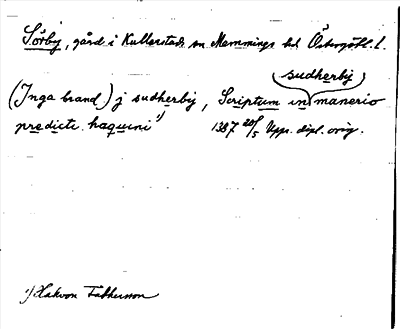 Sörby, gård i Kullerstads sn Memmings hd Östergötl. l.
sudherby
(Inga brand) j sudherby, Scriptum in manerio
predicti haquini 1) 1387 20/5 Upps. dipl. orig.
1) Hakon